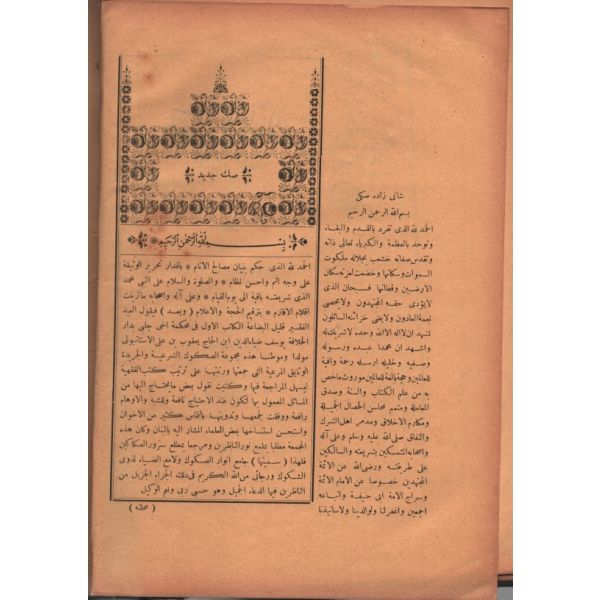 صك جديد
بسم الله الرحمن الرحيم
الحمد لله الذى حكم بنيان مصالح الانام * باقدار تحرير الوثيقة
على وجه اتم واحسن نظام * والصلوة والسلام على النبى محمد
الذى شريعته باقية الى يوم القيام * وعلى آله واصحابه مازينت
اقلام الاقلام * بترقيم الحجة والاعلام ( وبعد ) فيقول العبد
الفقير قليل البضاعة الكاتب الاول فى محكمة اخى چلبى بدار
الخلافة يوسف ضياءالدين ابن الحاج يعقوب بن على الاستانبولى
مولدا وموطنا هذه مجموعة الصكوك الشرعية والجريدة
الوثايق المرعية التى جمعتها ورتبتها على ترتيب كتب الفقهية
ليسهل المراجعة فيها وكتبت نقول بعض مايحتاج اليها من
المسائل المعمول بها لتكون عند الاحتياج نافعة وللشبه والاوهام
رافعة ووفقت لجمعها وتدوينها بالتماس كثير من الاخوان
واستحسن استنساخها بعض العلماء المشار اليه بالبنان وكان هذه
الجمعة مطلبا بلمع نور الناظرين ومرجعا بمطلع سرور الصكاكين
فلهذا ( سميتها ) جامع انوار الصكوك ولامع الضياء لذوى
الشكوك ورجائى من الله الكريم فى ذلك الجزاء الجزيل من
الناظرين فيها الدعاء الجميل وهو حسبى ربى ونعم الوكيل
( محله )
شانى زاده صكى
بسم الله الرحمن الرحيم
الحمد لله الذى تفرد بالقدم والبقاء
وتوحد بالعظمة والكبرياء تعالى ذاته
وتقدس صفاته خشعب بجلاله ملكوت
السموات وسكانها وخضعت لعزته سكان
الارضين وقطانها فسبحان الذى
لايؤدى حقه المجتهدون ولايحصى
نعمه العادون ولايفنى خزائنه السائلون
نشهد ان لااله الاالله وحده لاشريك له
واشهد ان محمدا عبده ورسوله
وصفيه وخليله ارسله رحمة وافية
للعالمين وحجة بالغة للعالمين مورث ماخص
به من علم الكتاب والسنة وصدق
المعاملة ومتمم محاسن الخصال الجميلة
ومكارم الاخلاق ومدمر اهل الشرك
والنفاق صلى الله عليه وسلم وعلى آله
واصحابه المتمسكين بشريعته والسالكين
على طريقته ورضى الله عن الائمة
المجتهدين خصوصا عن الامام الائمة
وسراج الامة ابى حنيفة واتباعه
اجمعين واغفر لنا ولوالدينا ولاساتيذنا